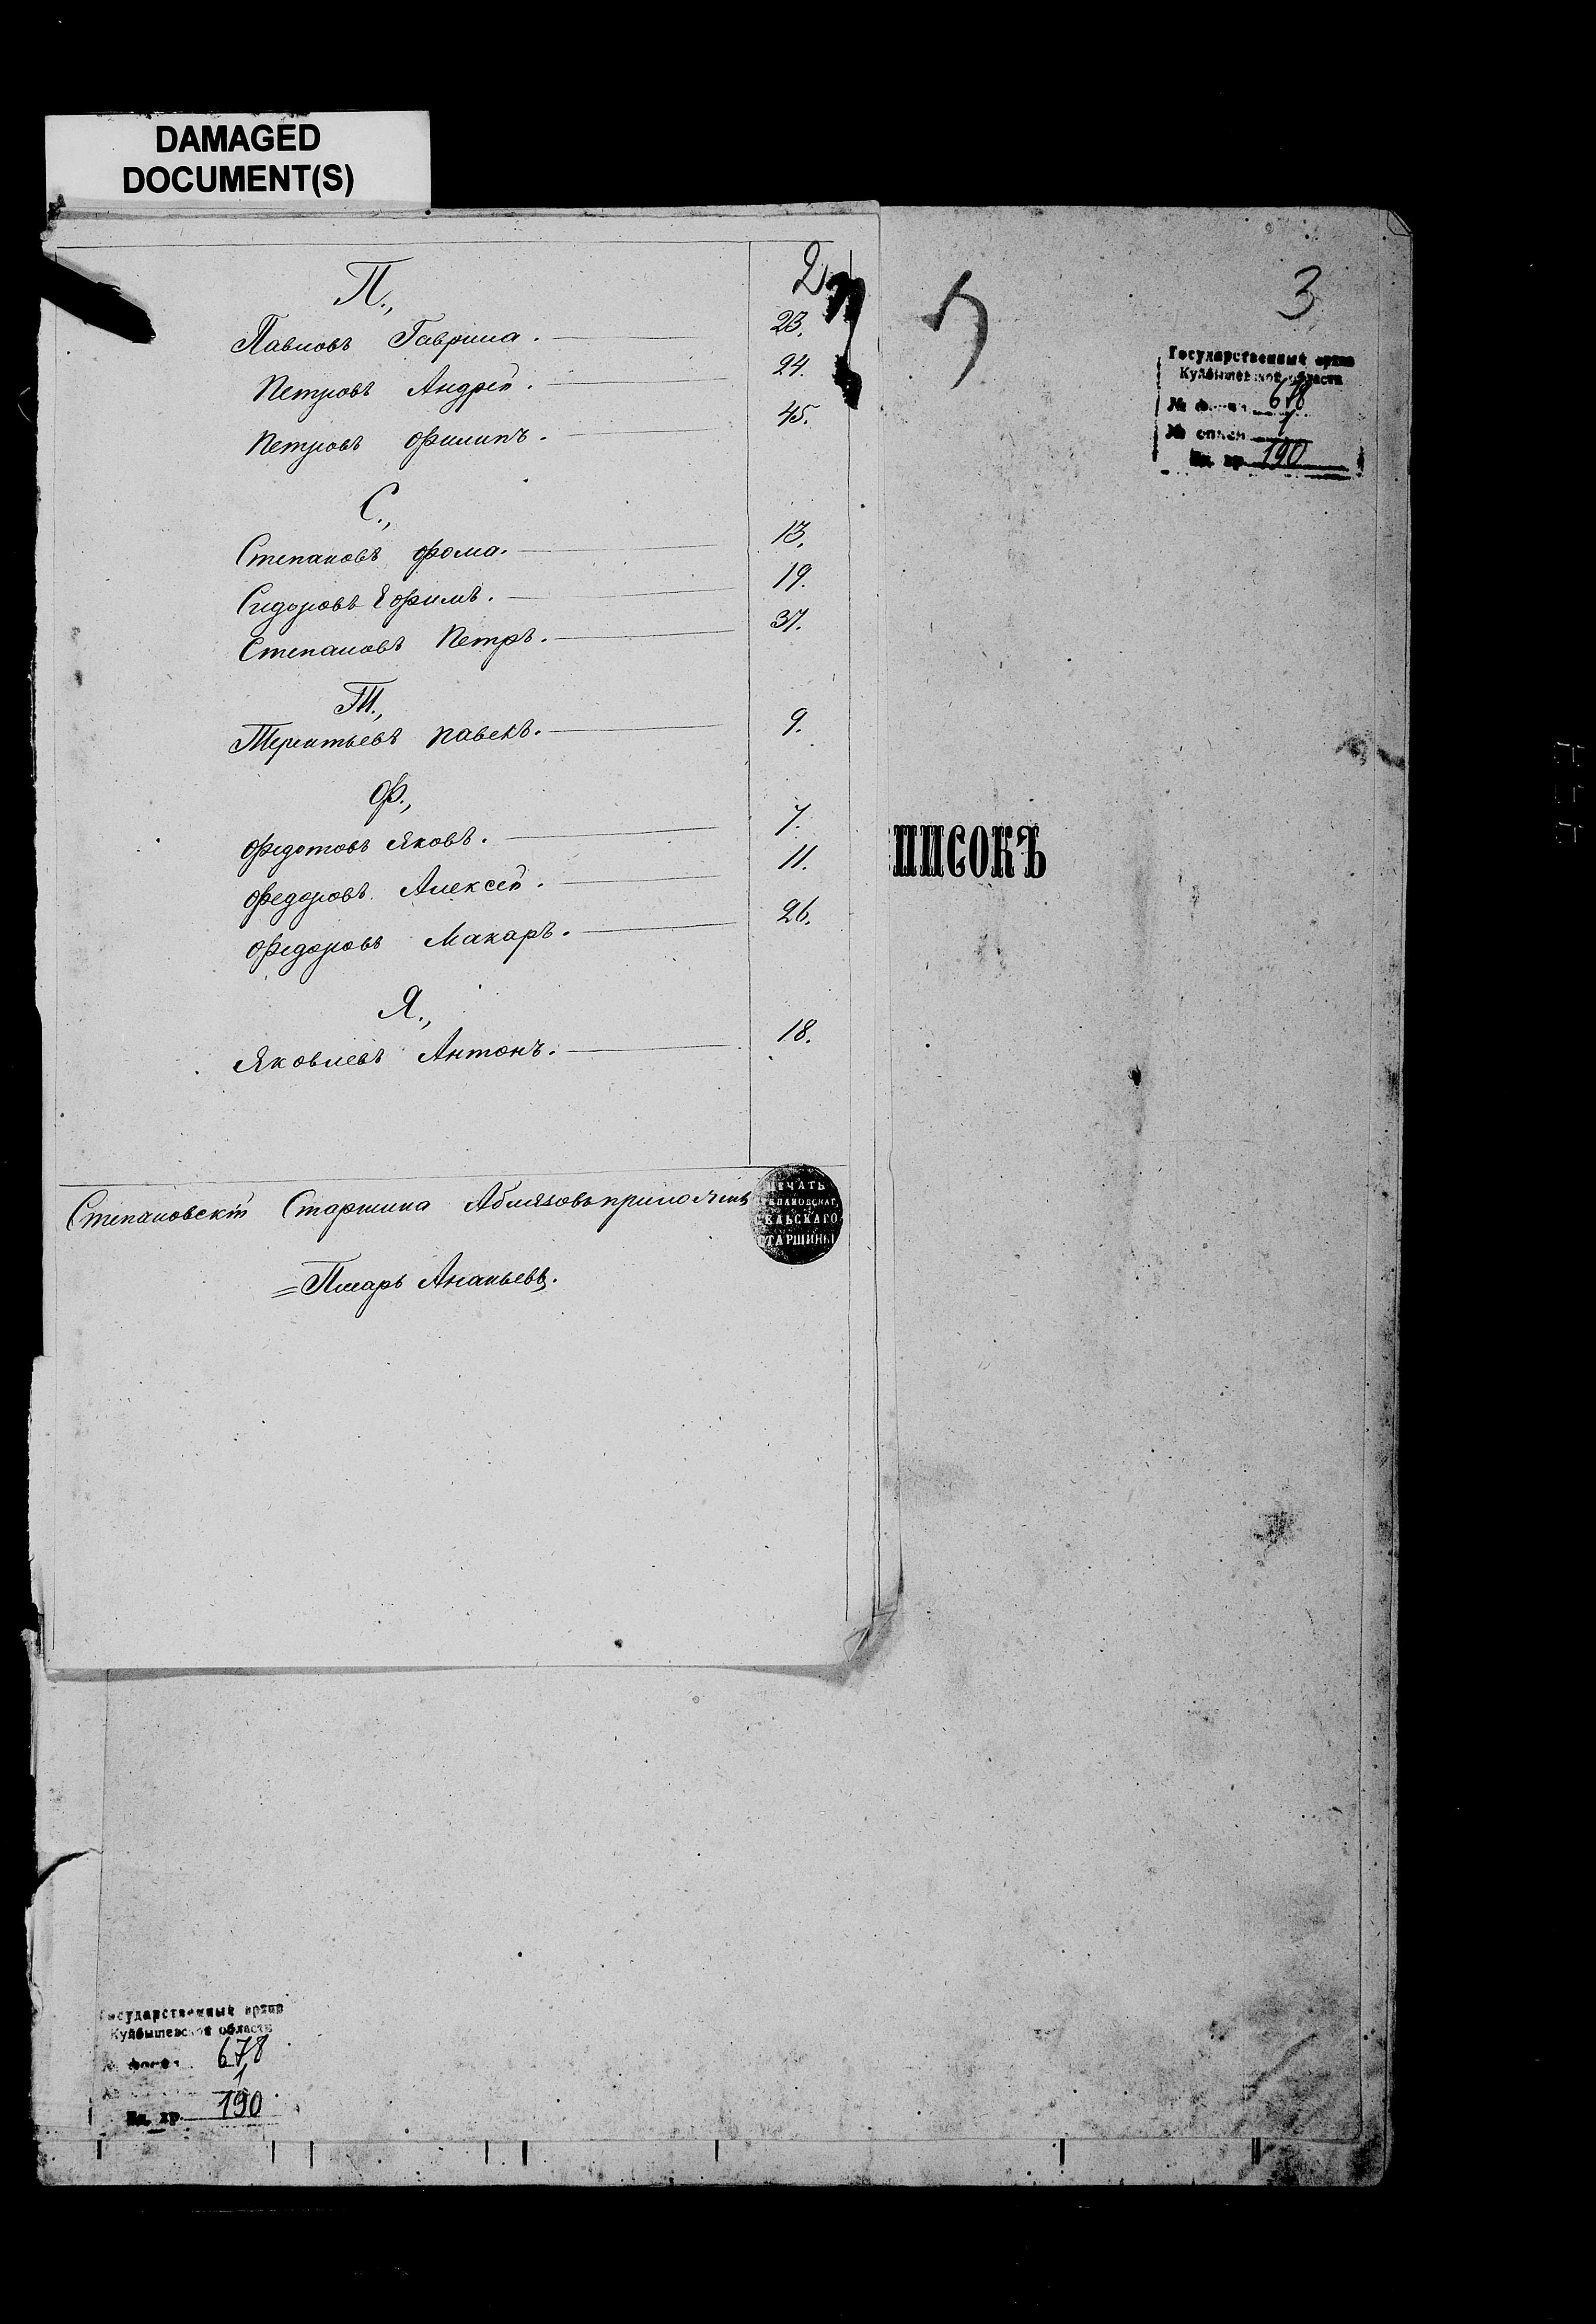 DAMAGED
DOCUMENT(S)
2
П.,
Павловъ Гаврила. 23.
Петровъ Андрей. 24.
Петровъ Филипъ. 45.
С.,
Степановъ Фома. 13.
Сидоровъ Ефимъ. 19.
Степановъ Петръ. 37.
Т.,
Терентьевъ Павелъ. 9.
Ф.,
Федотовъ Яковъ. 7.
Федоровъ Алексей. 11.
Федоровъ Макаръ. 26.
Я.,
Яковлевъ Антонъ. 18.
Степановскій Старшина Аблязовъ приложилъ
ПЕЧАТЬ
СТЕПАНОВСКАГ
СЕЛЬСКАГО
СТАРШИНЫ
=Писарь Ананьевъ.
3
Государственный архив
Куйбышевской области
№ фонда 678
№ описи 1
Ед. хр. 190
ПИСОКЪ
Государственный архив
Куйбышевской области
№ фонда 678
1
Ед. хр. 190